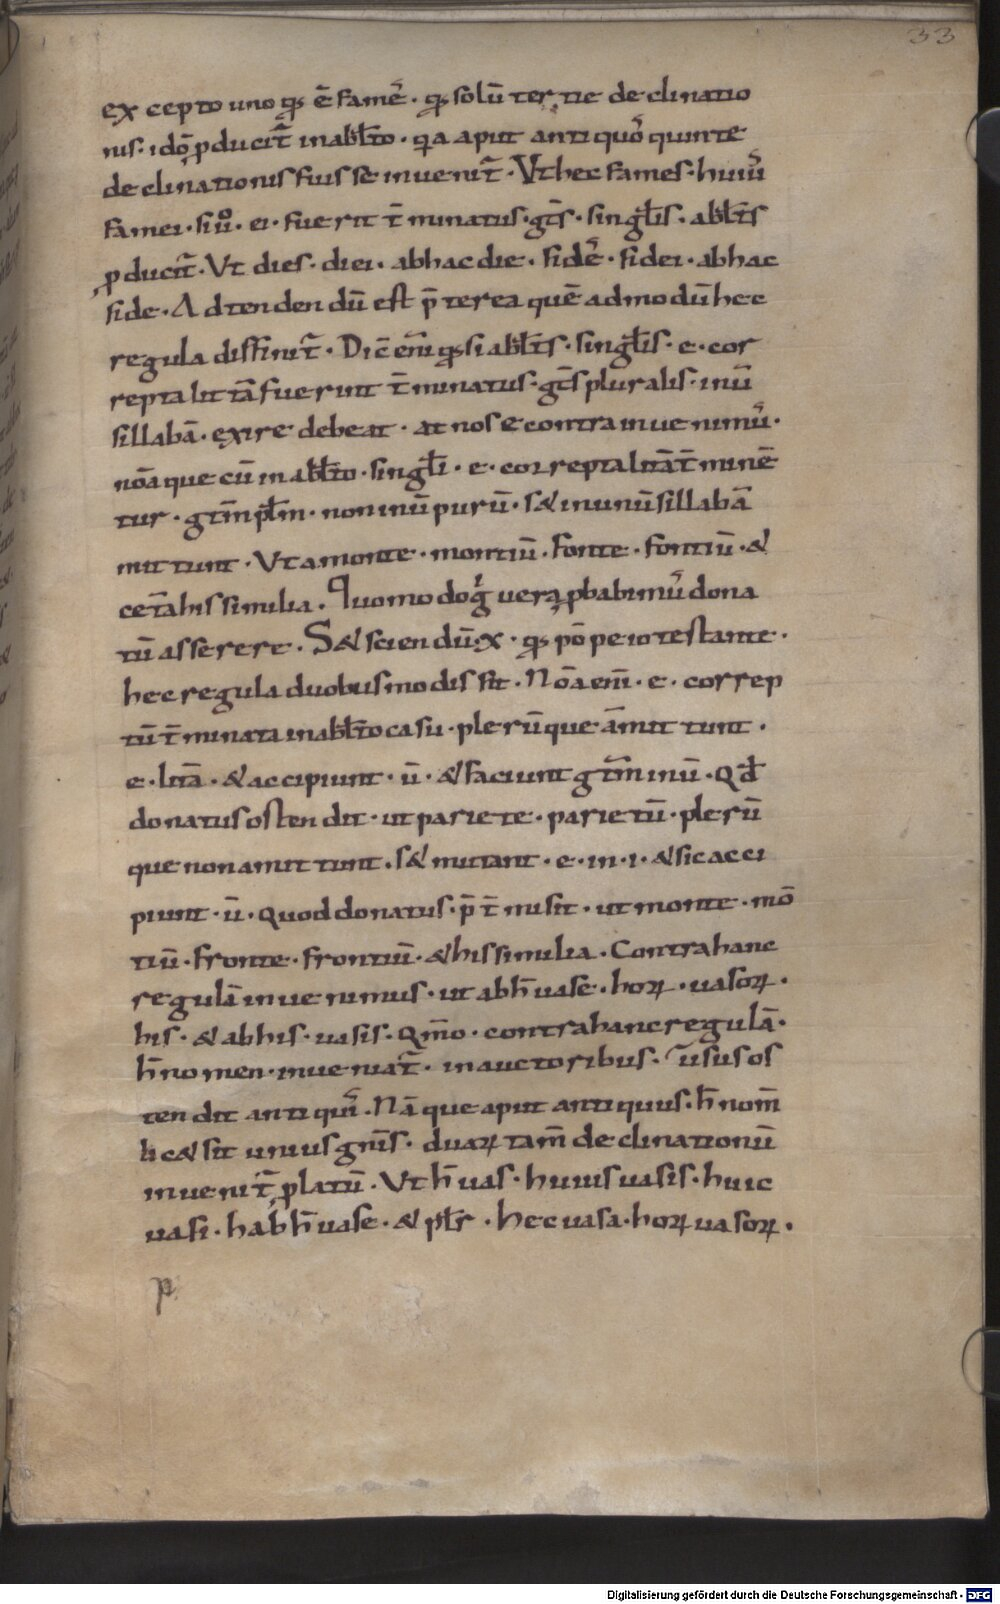 33
excepto uno qđ ē famē. qđ solū tertie declinatio
nis. idō ꝓducit᷑ in abl̄to. qͥa aput antiquoˢ quinte
declinationis fuisse inuenit᷑. Vt hec fames. huiuˢ
famei. si u̅o. ei. fuerit t̄minatus. gt̄s. singl̄is. abl̄ts
ꝓducit᷑. Vt dies. diei. ab hac die. fidēˢ. fidei. ab hac
fide. Adtendendū est p̄terea quēadmodū hec
regula diffinit᷑. Dic̄ eni̅ qđ si abl̄ts. singl̄is. e. cor
repta litt̄a fuerint t̄minatus. gt̄s pluralis. in ū
sillabā. exire debeat. at nos e contra inuenimuˢ.
nōa que cū in abl̄to. singl̄i. e. correpta litt̄a t̄minē
tur. gtm̄ pl̄m. non in ū purū. s& in unū sillabā
mittunt. Vt a monte. montiū. fonte. fontiū. &
cet̄a his similia. Quomodo gͥ ueraꝓbabimuˢ dona
tū asserere. S& sciendū .x. qđ pōpeio testante.
hec regula duobus modis fit. Nōa eni̅. e. correp
tū t̄minata in abl̄to casu. plerūque āmittunt.
e. litt̄ā. & accipiunt. ū. & faciunt gtm̄ in ū. Qđ
donatus ostendit. ut pariete. parietū. plerū
que non amittunt. s& mutant. e. in. i. & sic acci
piunt. ū. Quod donatus. p̄t̄misit. ut monte. mō
tiū. fronte. frontiū. & his similia. Contra hanc
regulā inuenimus. ut ab h̄ uase. horꝝ. uasorꝝ.
his. & ab his. uasis. Qm̄o. contra hanc regulā.
h̄ nomen. inueniat᷑. in auctoribus. usus os
tendit antiquiˢ. Nā que aput antiquus. h̄ nom̄
lic& sit unius gn̄is. duarꝝ tam̄ declinationū
inuenit᷑ ꝓlatū. Vt h̄ uas. huius uasis. huic
uasi. h ab h̄ uase. & pl̄r. hec uasa. horꝝ uasorꝝ.
p
Digitalisierung gefördert durch die Deutsche Forschungsgemeinschaft - DFG